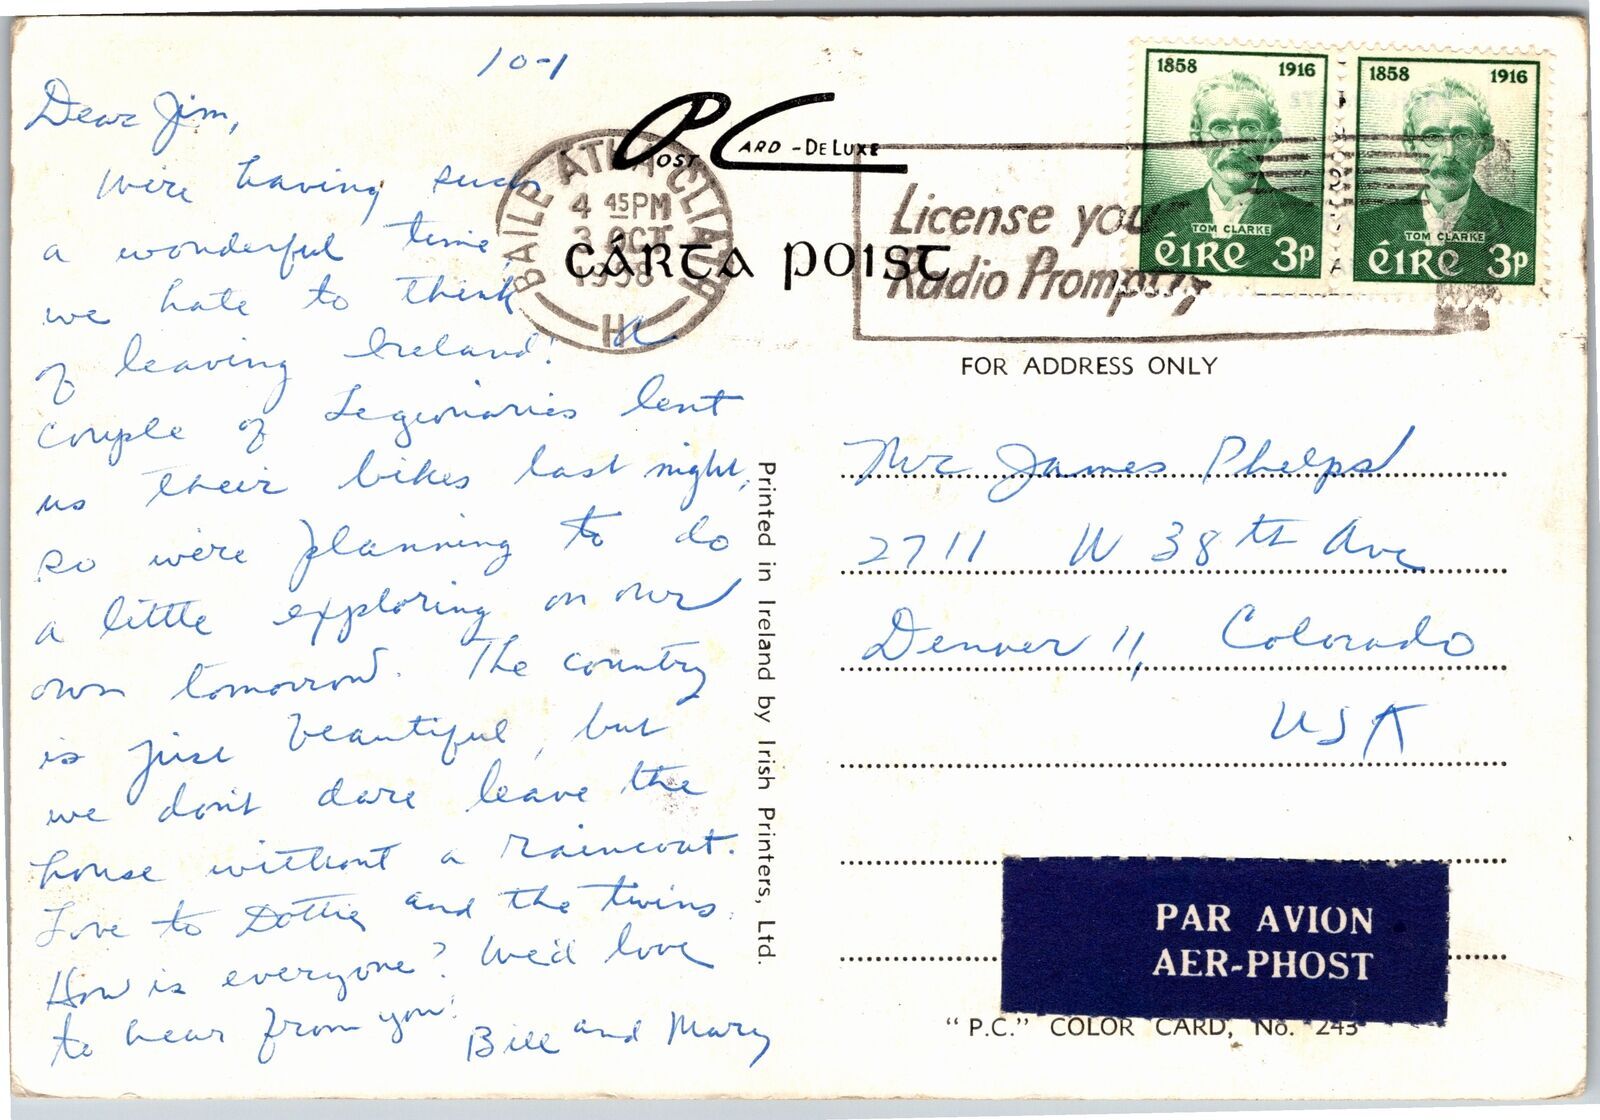 10-1
Dear Jim,
We're having such
a wonderful time
we hate to think
of leaving Ireland! A
couple of Legionaries lent
us their bikes last night,
so we're planning to do
a little exploring on our
own tomorrow. The country
is just beautiful, but
we don't dare leave the
house without a raincoat.
Love to Dottie and the twins.
How is everyone? We'd love
to hear from you!
Bill and Mary
POST CARD - DE LUXE
CÁRTA POIST
BAILE ÁTHA CLIATH
4 45PM
3 OCT
1958
H
License your
Radio Promptly
1858 1916
TOM CLARKE
éIRE 3p
1858 1916
TOM CLARKE
éIRE 3p
FOR ADDRESS ONLY
Printed in Ireland by Irish Printers, Ltd.
Mr James Phelps
2711 W 38th Ave
Denver 11, Colorado
USA
PAR AVION
AER-PHOST
"P.C." COLOR CARD, No. 243